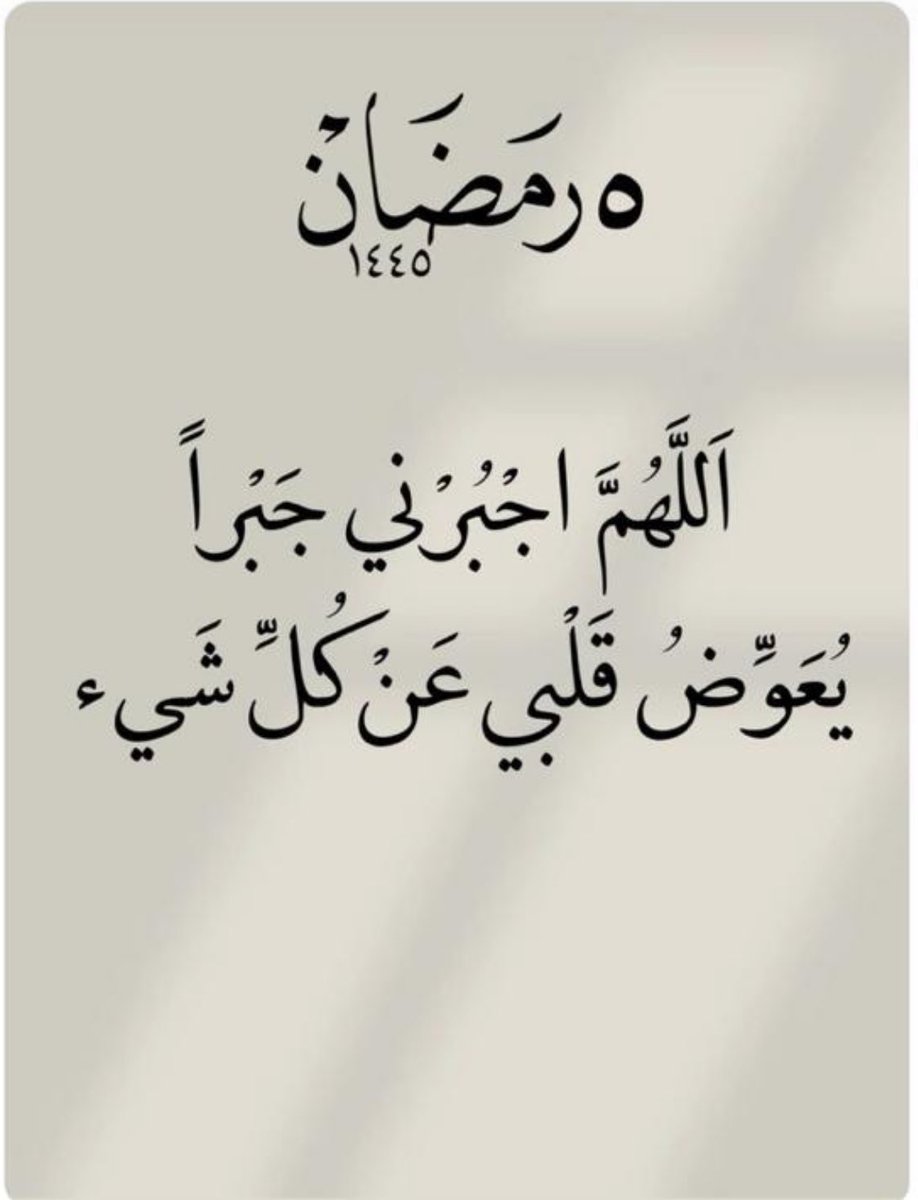 ٥ رَمَضَانْ
١٤٤٥
اَللَّهُمَّ اجْبُرْني جَبْراً
يُعَوِّضُ قَلْبي عَنْ كُلِّ شَيء